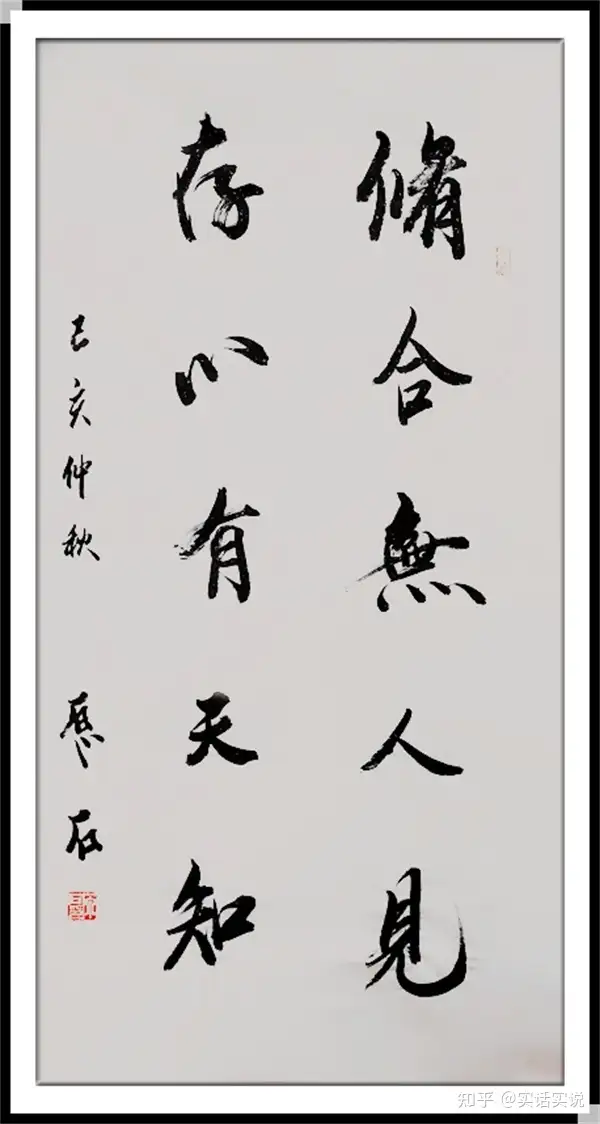 脩合無人見
存心有天知
己亥仲秋
知乎 @实话实说